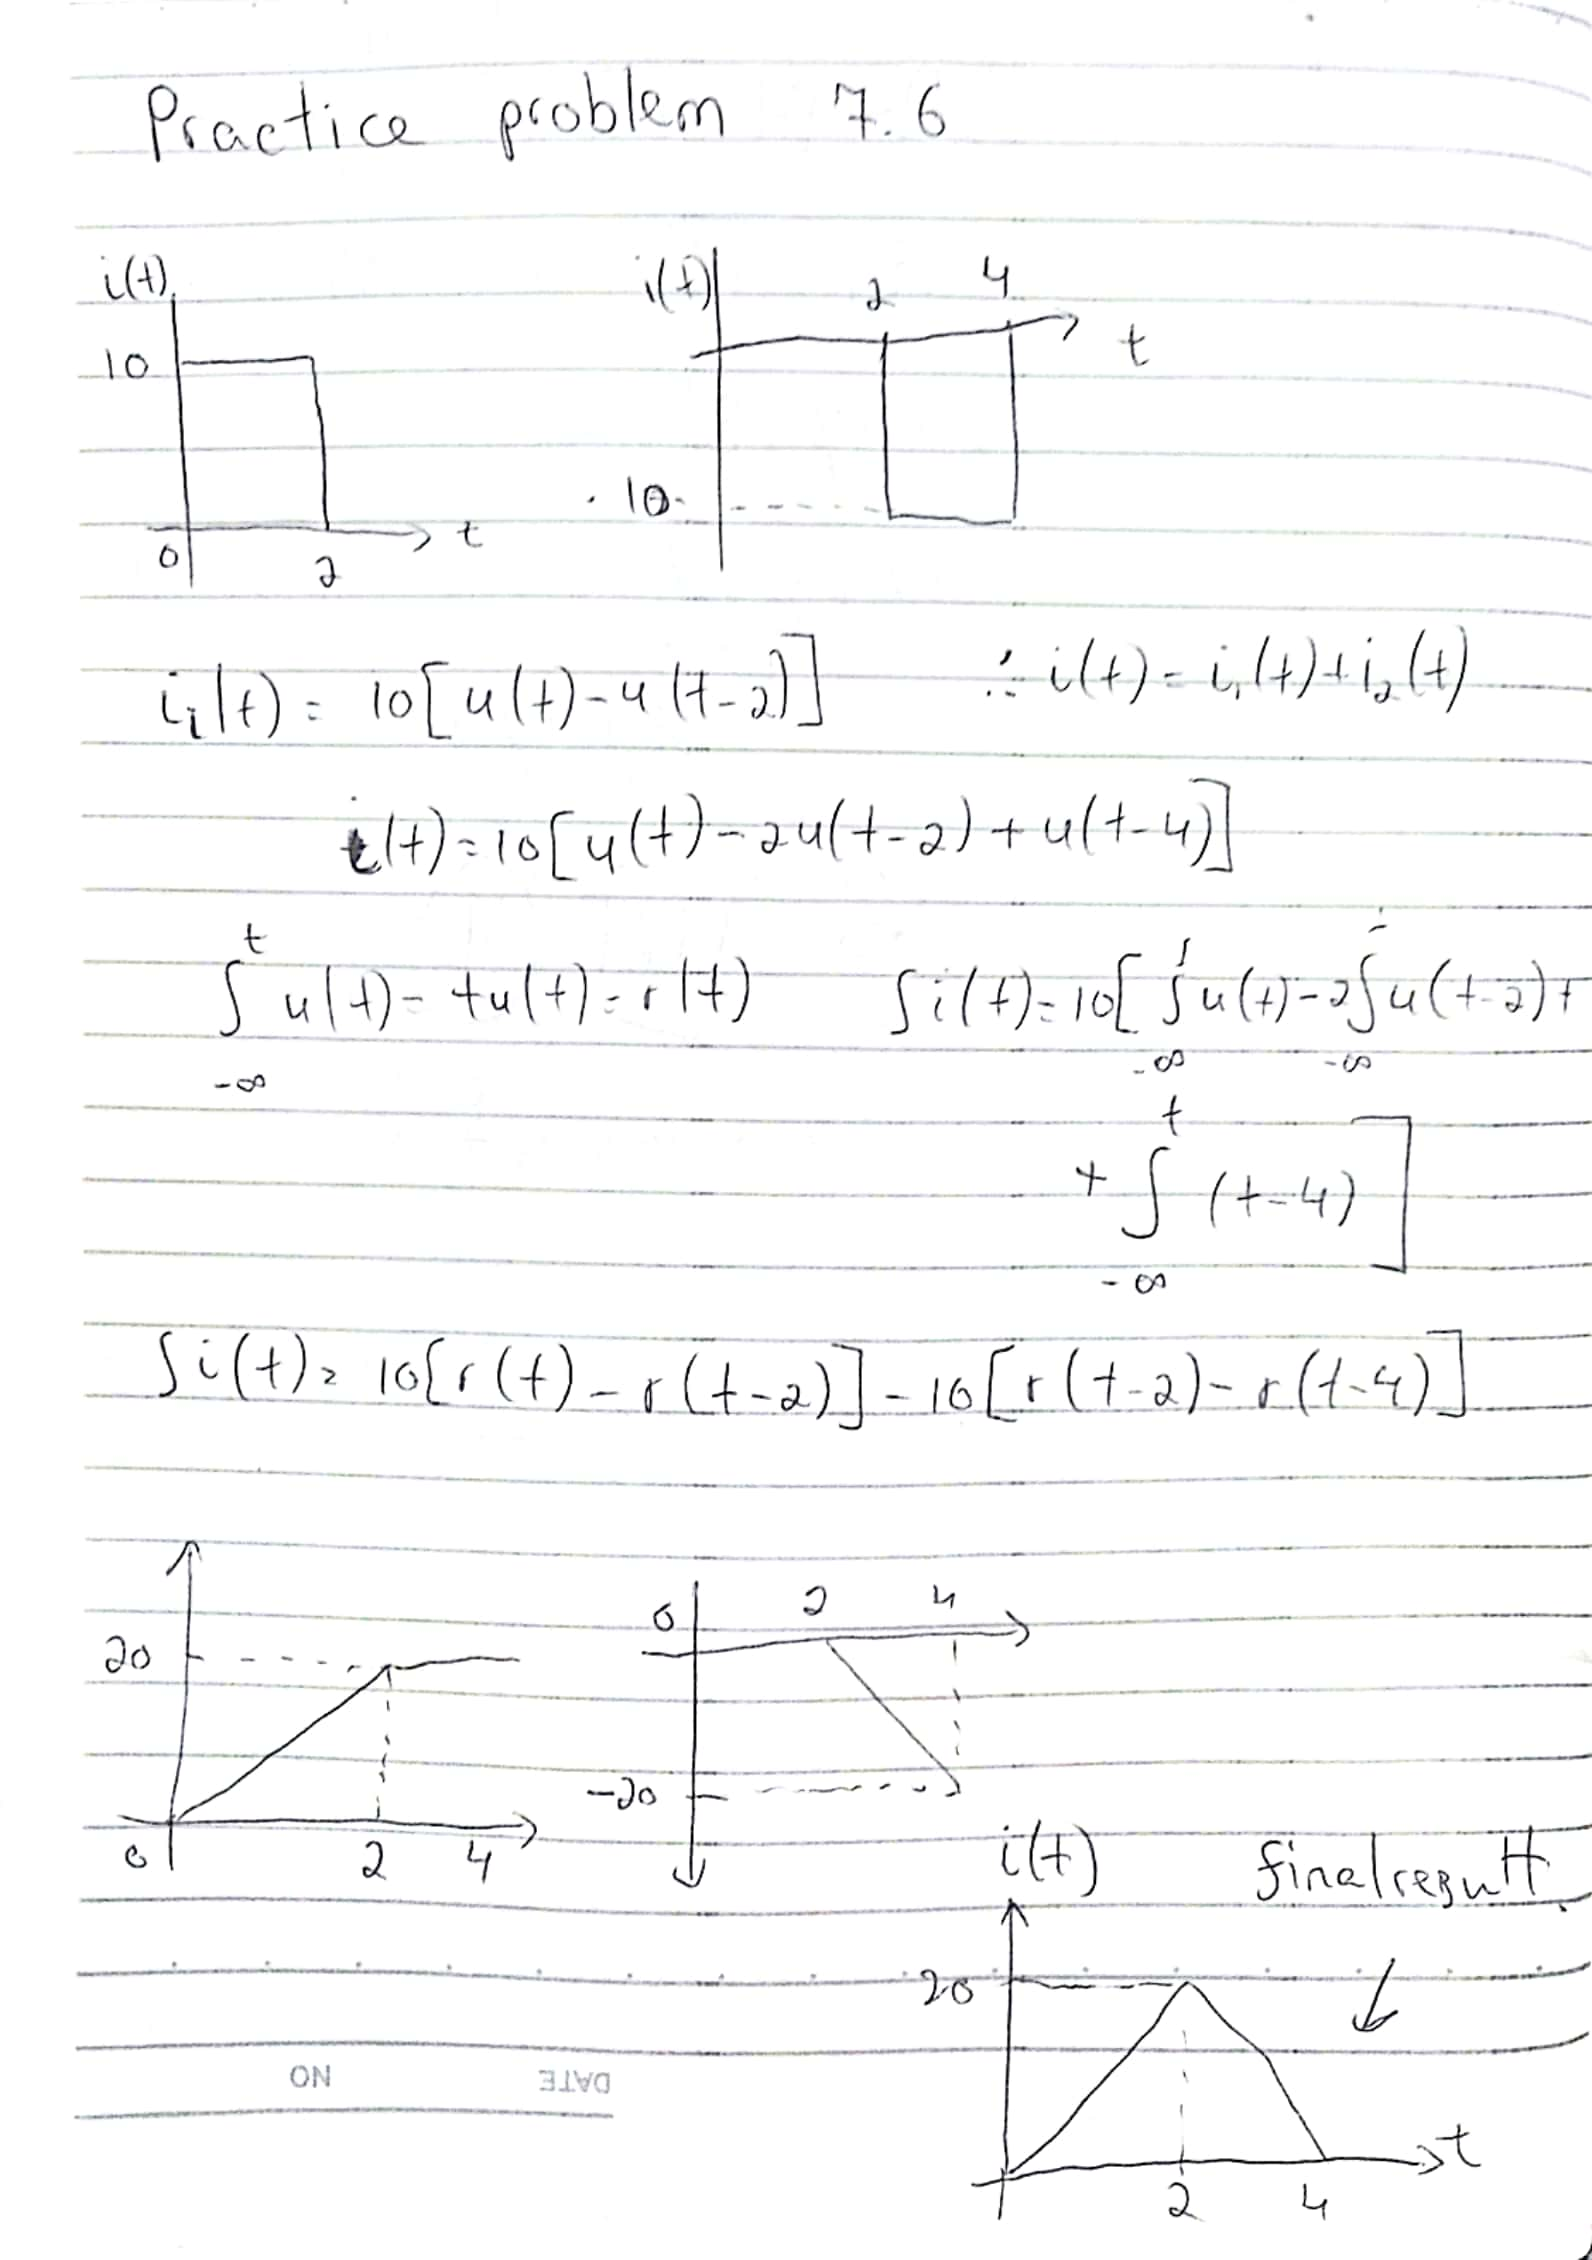 Practice problem 7.6
i(t)
10
0
2
t
i(t)
2
4
t
-10
i₁(t) = 10[u(t)-u(t-2)]
∴ i(t) = i₁(t)+i₂(t)
i(t) = 10[u(t)-2u(t-2)+u(t-4)]
t
∫ u(t) = tu(t) = r(t)
-∞
∫i(t) = 10[∫u(t)-2∫u(t-2)+
-∞ -∞
t
+ ∫ (t-4)]
-∞
∫i(t) = 10[r(t)-r(t-2)]-10[r(t-2)-r(t-4)]
20
0
2
4
0
2
4
-20
i(t)
final result
20
2
4
t
NO
DATE